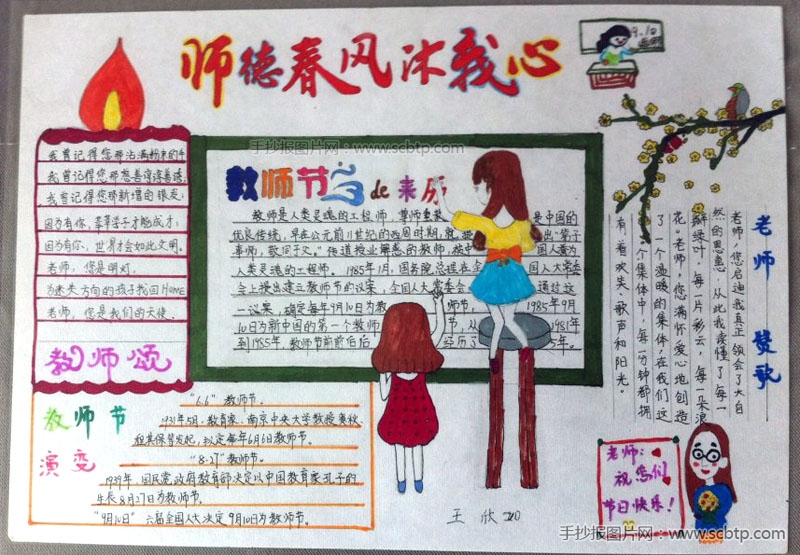 师德春风沐我心
9.10
手抄报图片网:www.scbtp.com
我曾记得您那沾满粉末的手
我曾记得您那慈善谆谆善诱
我曾记得您那新增的银发
因为有你,莘莘学子才能成才;
因为有你,世界才会如此文明。
老师,您是明灯,
为迷失方向的孩子找回HOME
老师,您是我们的天使.
教师颂
教师节 de 来历
教师是人类灵魂的工程师,尊师重教 是中国的
优良传统,早在公元前11世纪的西周时期,就 出“弟子
事师,敬同于父。”传道授业解惑的教师,被中 国人誉为
人类灵魂的工程师。1985年1月,国务院总理在全 国人大常委
会上提出建立教师节的议案,全国人大常委会 通过这
一议案,确定每年9月10日为教 师节, 1985年9月
10日为新中国的第一个教师 节,从 1931年
到1985年,教师节前前后后 经历了 年。
老师 赞歌
老师,您启迪我真正领会了大自
然的恩惠,从此我读懂了每一
瓣绿叶,每一片彩云,每一朵浪
花。老师,您满怀爱心地创造
了一个温暖的集体,在我们这
个集体中,每一分钟都拥
有着欢笑、歌声和阳光。
教师节
演变
“6.6”教师节.
1931年5月,教育家、南京中央大学教授
程其保等发起,拟定每年6月6日教师节。
“8·27”教师节.
1939年,国民党政府教育部决定以中国教育家孔子的
生辰8月27日为教师节。
“9月10日”六届全国人大决定9月10日为教师节.
王欣
老师:
祝您们
节日快乐!
手抄报图片网:www.scbtp.com